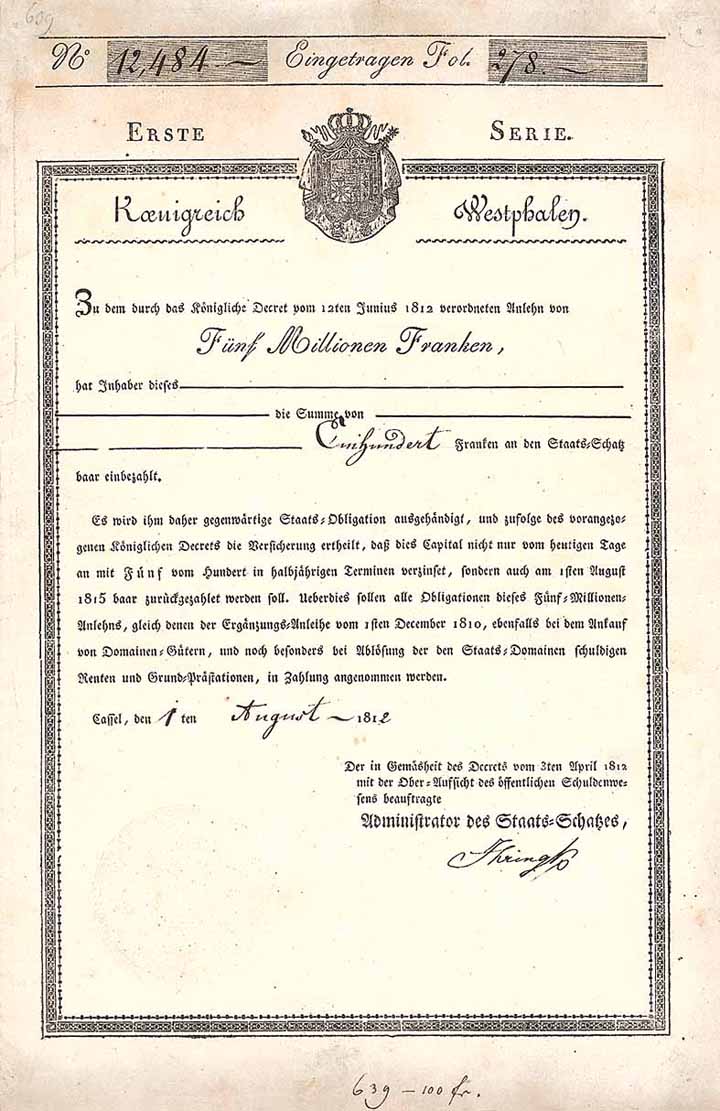 639
No 12,484 Eingetragen Fol. 278.
ERSTE SERIE.
Kœnigreich Westphalen.
Zu dem durch das Königliche Decret vom 12ten Junius 1812 verordneten Anlehn von
Fünf Millionen Franken,
hat Inhaber dieses
die Summe von
Einhundert Franken an den Staats-Schatz
baar einbezahlt.
Es wird ihm daher gegenwärtige Staats-Obligation ausgehändigt, und zufolge des vorangezo-
genen Königlichen Decrets die Versicherung ertheilt, daß dies Capital nicht nur vom heutigen Tage
an mit Fünf vom Hundert in halbjährigen Terminen verzinset, sondern auch am 1sten August
1815 baar zurückgezahlet werden soll. Ueberdies sollen alle Obligationen dieses Fünf-Millionen-
Anlehns, gleich denen der Ergänzungs-Anleihe vom 1sten December 1810, ebenfalls bei dem Ankauf
von Domainen-Gütern, und noch besonders bei Ablösung der den Staats-Domainen schuldigen
Renten und Grund-Prästationen, in Zahlung angenommen werden.
Cassel, den 1 ten August 1812
Der in Gemäsheit des Decrets vom 3ten April 1812
mit der Ober-Aufsicht des öffentlichen Schuldenwe-
sens beauftragte
Administrator des Staats-Schatzes,
639 - 100 fr.